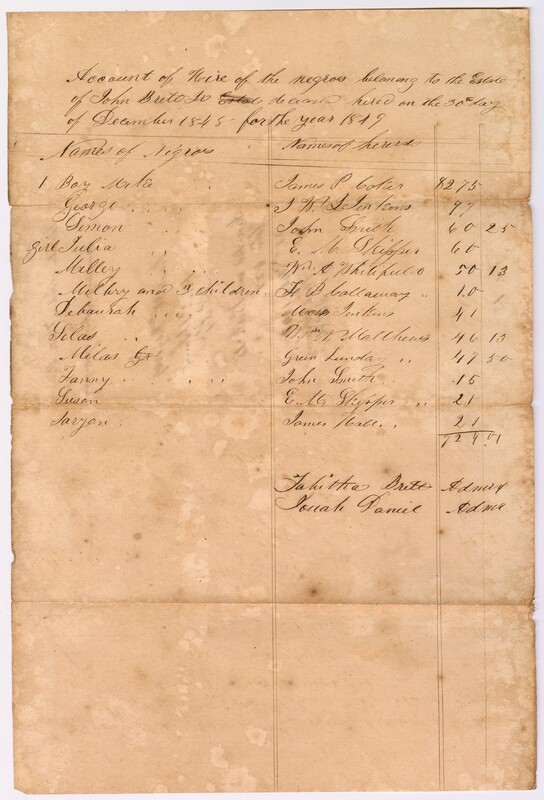 Account of Hire of the negros belonging to the Estate
of John Brett Dr Estate deceased hired on the 30th day
of December 1848 for the year 1849
Names of Negros Names of hirers
1 Boy Mike James P Cotar $275
George J W Jenkins 97
Simon John Smith 60 25
Girl Julia E. M Skipper 60
Milley Wm A Whitfield 50 13
Melbry and 3 children F B Callaway 10
Debaurah Jenkins 41
Silas Wm W Matthews 46 13
Milas Green Lunday 47 50
Fanny John Smith 15
Suson E M Skipper 21
Saryan James Hall 21
724 01
Tabitha Brett Admrx
Josiah Daniel Admr